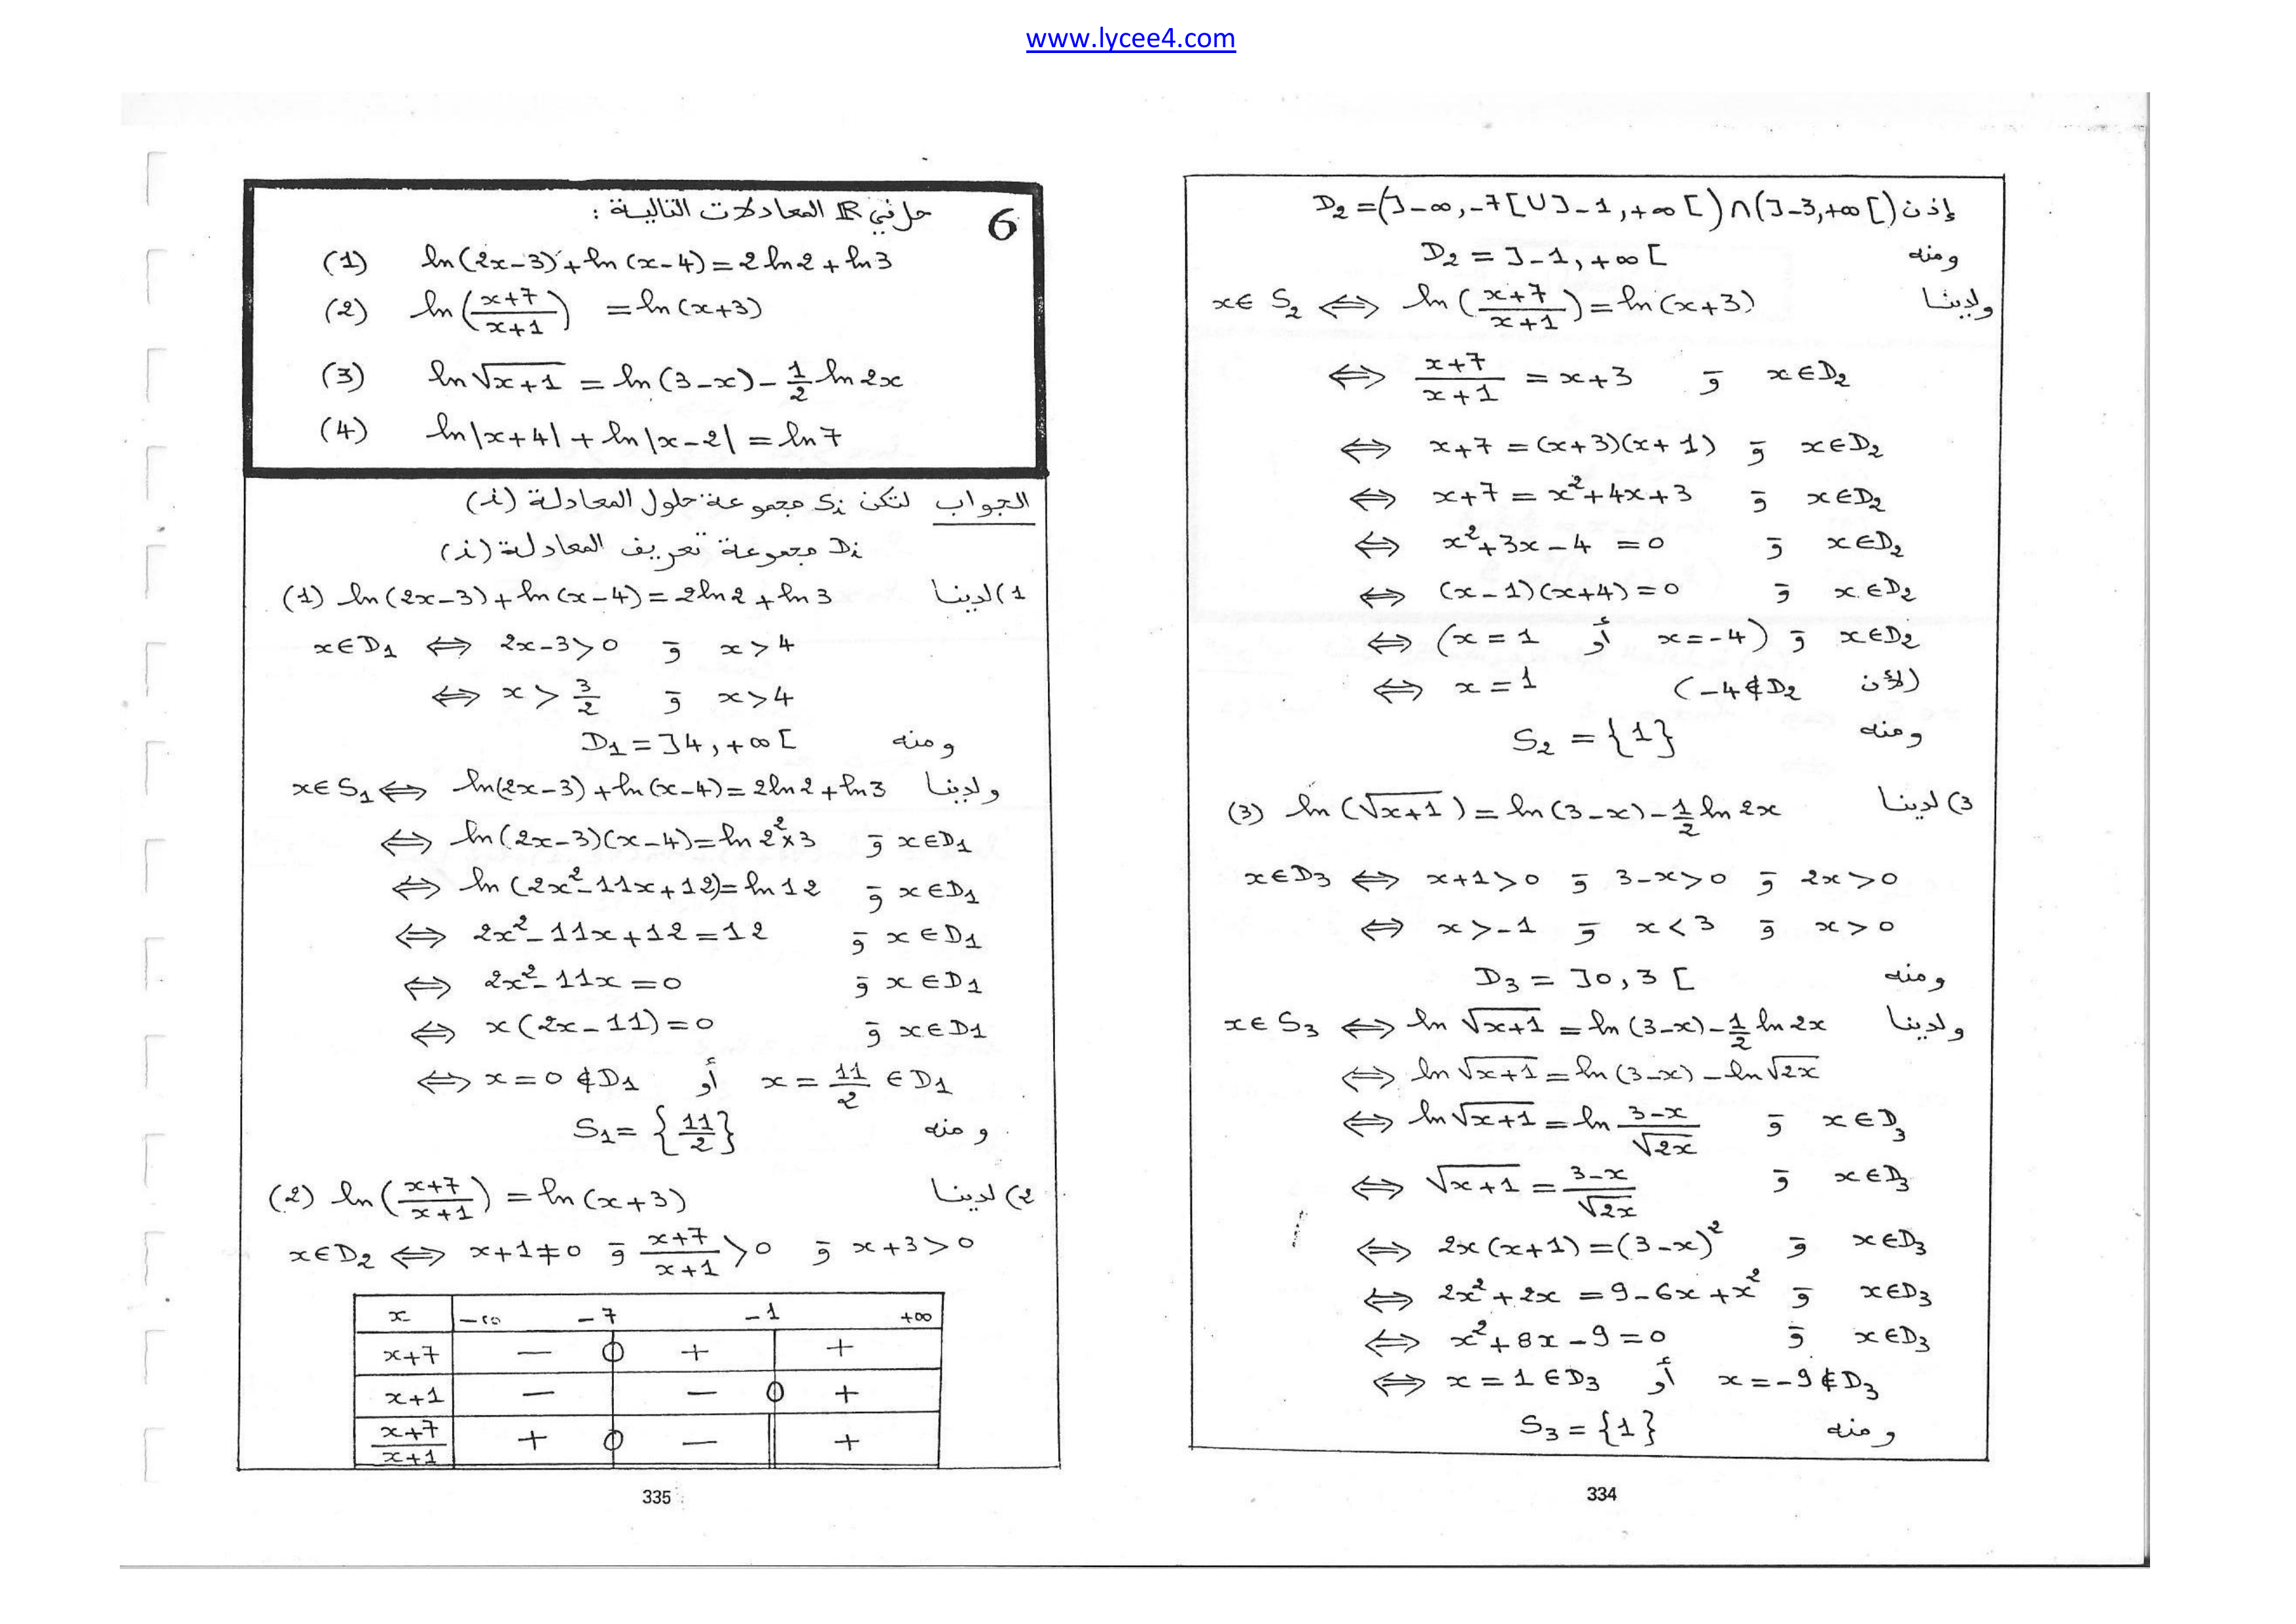 www.lycee4.com
6 حل في ℝ المعادلات التالية :
(1) ln(2x-3)+ln(x-4)=2ln2+ln3
(2) ln((x+7)/(x+1)) =ln(x+3)
(3) ln√(x+1) = ln(3-x)-1/2 ln2x
(4) ln|x+4|+ln|x-2|=ln7
الجواب لتكن Si مجموعة حلول المعادلة (i)
Di مجموعة تعريف المعادلة (i)
1) لدينا (1) ln(2x-3)+ln(x-4)=2ln2+ln3
x∈D₁ ⟺ 2x-3>0 و x>4
⟺ x>3/2 و x>4
ومنه D₁=]4,+∞[
ولدينا x∈S₁ ⟺ ln(2x-3)+ln(x-4)=2ln2+ln3
⟺ ln(2x-3)(x-4)=ln2²×3 و x∈D₁
⟺ ln(2x²-11x+12)=ln12 و x∈D₁
⟺ 2x²-11x+12=12 و x∈D₁
⟺ 2x²-11x=0 و x∈D₁
⟺ x(2x-11)=0 و x∈D₁
⟺ x=0∉D₁ أو x=11/2 ∈D₁
ومنه S₁={11/2}
2) لدينا (2) ln((x+7)/(x+1))=ln(x+3)
x∈D₂ ⟺ x+1≠0 و (x+7)/(x+1)>0 و x+3>0
x -∞ -7 -1 +∞
x+7 - 0 + +
x+1 - - 0 +
(x+7)/(x+1) + 0 - || +
335
إذن D₂=(]-∞,-7[∪]-1,+∞[)∩(]-3,+∞[)
ومنه D₂=]-1,+∞[
ولدينا x∈S₂ ⟺ ln((x+7)/(x+1))=ln(x+3)
⟺ (x+7)/(x+1)=x+3 و x∈D₂
⟺ x+7=(x+3)(x+1) و x∈D₂
⟺ x+7=x²+4x+3 و x∈D₂
⟺ x²+3x-4=0 و x∈D₂
⟺ (x-1)(x+4)=0 و x∈D₂
⟺ (x=1 أو x=-4) و x∈D₂
⟺ x=1 (لأن -4∉D₂)
ومنه S₂={1}
3) لدينا (3) ln(√(x+1))=ln(3-x)-1/2 ln2x
x∈D₃ ⟺ x+1>0 و 3-x>0 و 2x>0
⟺ x>-1 و x<3 و x>0
ومنه D₃=]0,3[
ولدينا x∈S₃ ⟺ ln√(x+1)=ln(3-x)-1/2 ln2x
⟺ ln√(x+1)=ln(3-x)-ln√(2x)
⟺ ln√(x+1)=ln (3-x)/√(2x) و x∈D₃
⟺ √(x+1)=(3-x)/√(2x) و x∈D₃
⟺ 2x(x+1)=(3-x)² و x∈D₃
⟺ 2x²+2x=9-6x+x² و x∈D₃
⟺ x²+8x-9=0 و x∈D₃
⟺ x=1∈D₃ أو x=-9∉D₃
ومنه S₃={1}
334